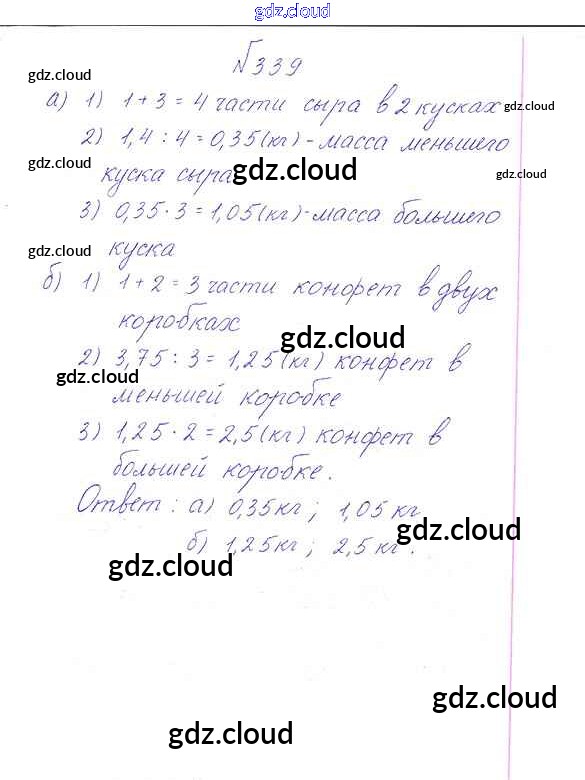 gdz.cloud
№339
gdz.cloud
а) 1) 1 + 3 = 4 части сыра в 2 кусках gdz.cloud
2) 1,4 : 4 = 0,35 (кг) - масса меньшего
куска сыра gdz.cloud gdz.cloud
3) 0,35 · 3 = 1,05 (кг) - масса большего
gdz.cloud куска
б) 1) 1 + 2 = 3 части конфет в двух
коробках
gdz.cloud
2) 3,75 : 3 = 1,25 (кг) конфет в
gdz.cloud
меньшей коробке
3) 1,25 · 2 = 2,5 (кг) конфет в
большей коробке.
Ответ: а) 0,35 кг; 1,05 кг
gdz.cloud
б) 1,25 кг; 2,5 кг.
gdz.cloud
gdz.cloud
gdz.cloud